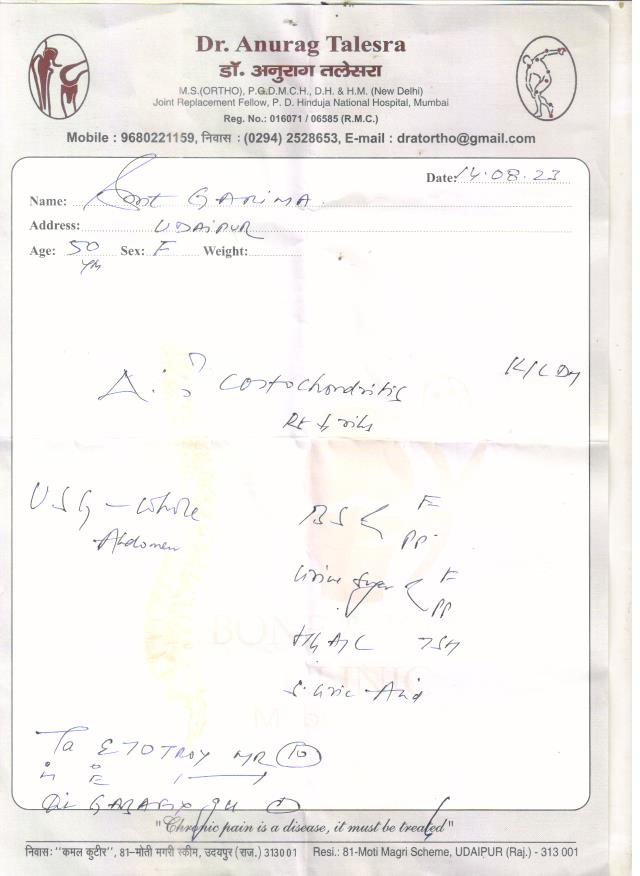 Dr. Anurag Talesra
डॉ. अनुराग तलेसरा
M.S.(ORTHO), P.G.D.M.C.H., D.H. & H.M. (New Delhi)
Joint Replacement Fellow, P. D. Hinduja National Hospital, Mumbai
Reg. No.: 016071 / 06585 (R.M.C.)
Mobile : 9680221159, निवास : (0294) 2528653, E-mail : dratortho@gmail.com
Date: 14.08.23
Name: GARIMA
Address: UDAIPUR
Age: 50 Sex: F Weight:
yrs
K/C DM
Costochondritis
Rt ribs
USG - Whole
Abdomen
BS F
PP
Urine Sugar F
PP
HbA1C TSH
S. Uric Acid
BONE
CLINIC
MR 10
"Chronic pain is a disease, it must be treated"
निवास: "कमल कुटीर", 81-मोती मगरी स्कीम, उदयपुर (राज.) 313001 Resi.: 81-Moti Magri Scheme, UDAIPUR (Raj.) - 313 001